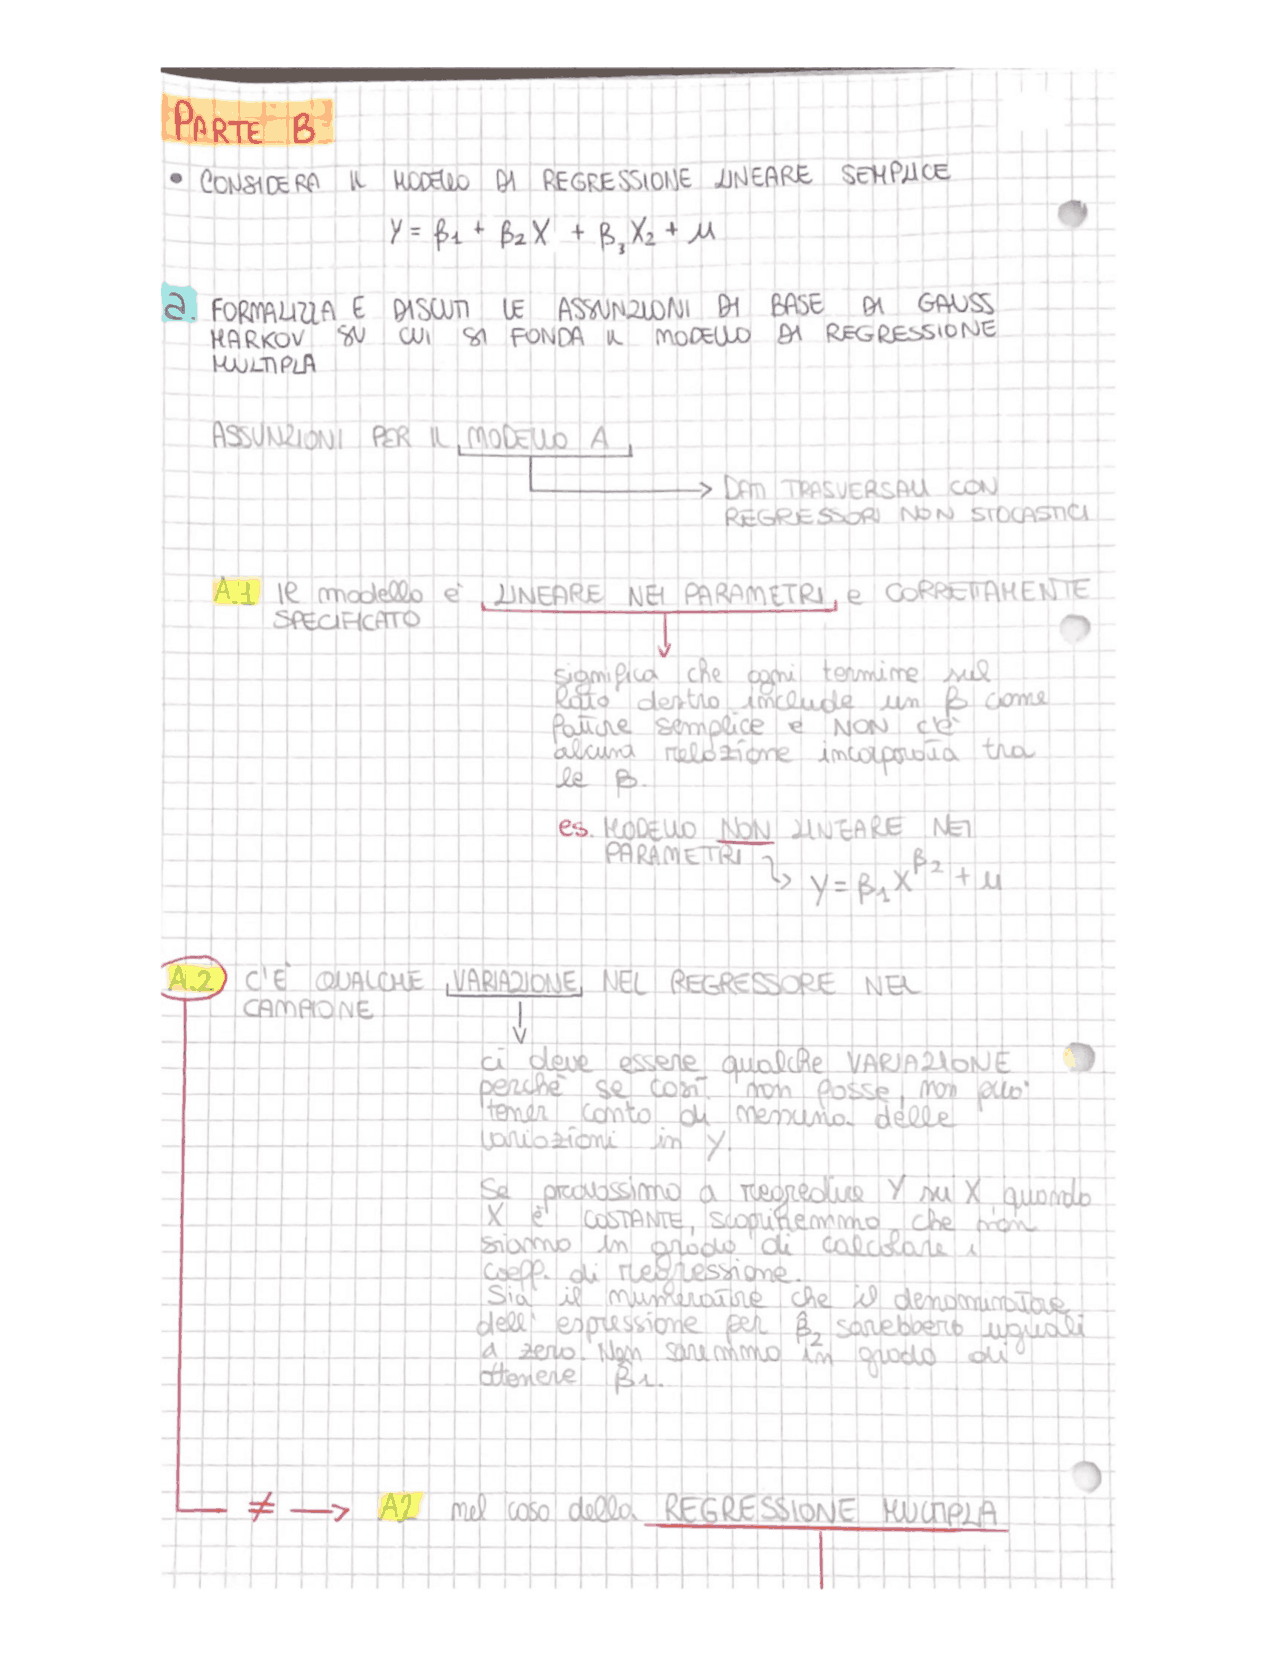 PARTE B
• CONSIDERA IL MODELLO DI REGRESSIONE LINEARE SEMPLICE
Y = β1 + β2 X + β3 X2 + μ
a. FORMALIZZA E DISCUTI LE ASSUNZIONI DI BASE DI GAUSS
MARKOV SU CUI SI FONDA IL MODELLO DI REGRESSIONE
MULTIPLA
ASSUNZIONI PER IL MODELLO A
→ DATI TRASVERSALI CON
REGRESSORI NON STOCASTICI
A.1 Il modello è LINEARE NEI PARAMETRI e CORRETTAMENTE
SPECIFICATO
significa che ogni termine sul
lato destro include un β come
fattore semplice e NON c'è
alcuna relazione incorporata tra
le β.
es. MODELLO NON LINEARE NEI
PARAMETRI
↳ Y = β1 X^β2 + μ
A.2 C'È QUALCHE VARIAZIONE NEL REGRESSORE NEL
CAMPIONE
ci deve essere qualche VARIAZIONE
perché se così non fosse, non può
tener conto di nessuna delle
variazioni in Y.
Se provassimo a regredire Y su X quando
X è COSTANTE, scopriremmo che non
siamo in grado di calcolare i
coeff. di regressione.
Sia il numeratore che il denominatore
dell' espressione per β̂2 sarebbero uguali
a zero. Non saremmo in grado di
ottenere β̂1.
≠ → A2 nel caso della REGRESSIONE MULTIPLA